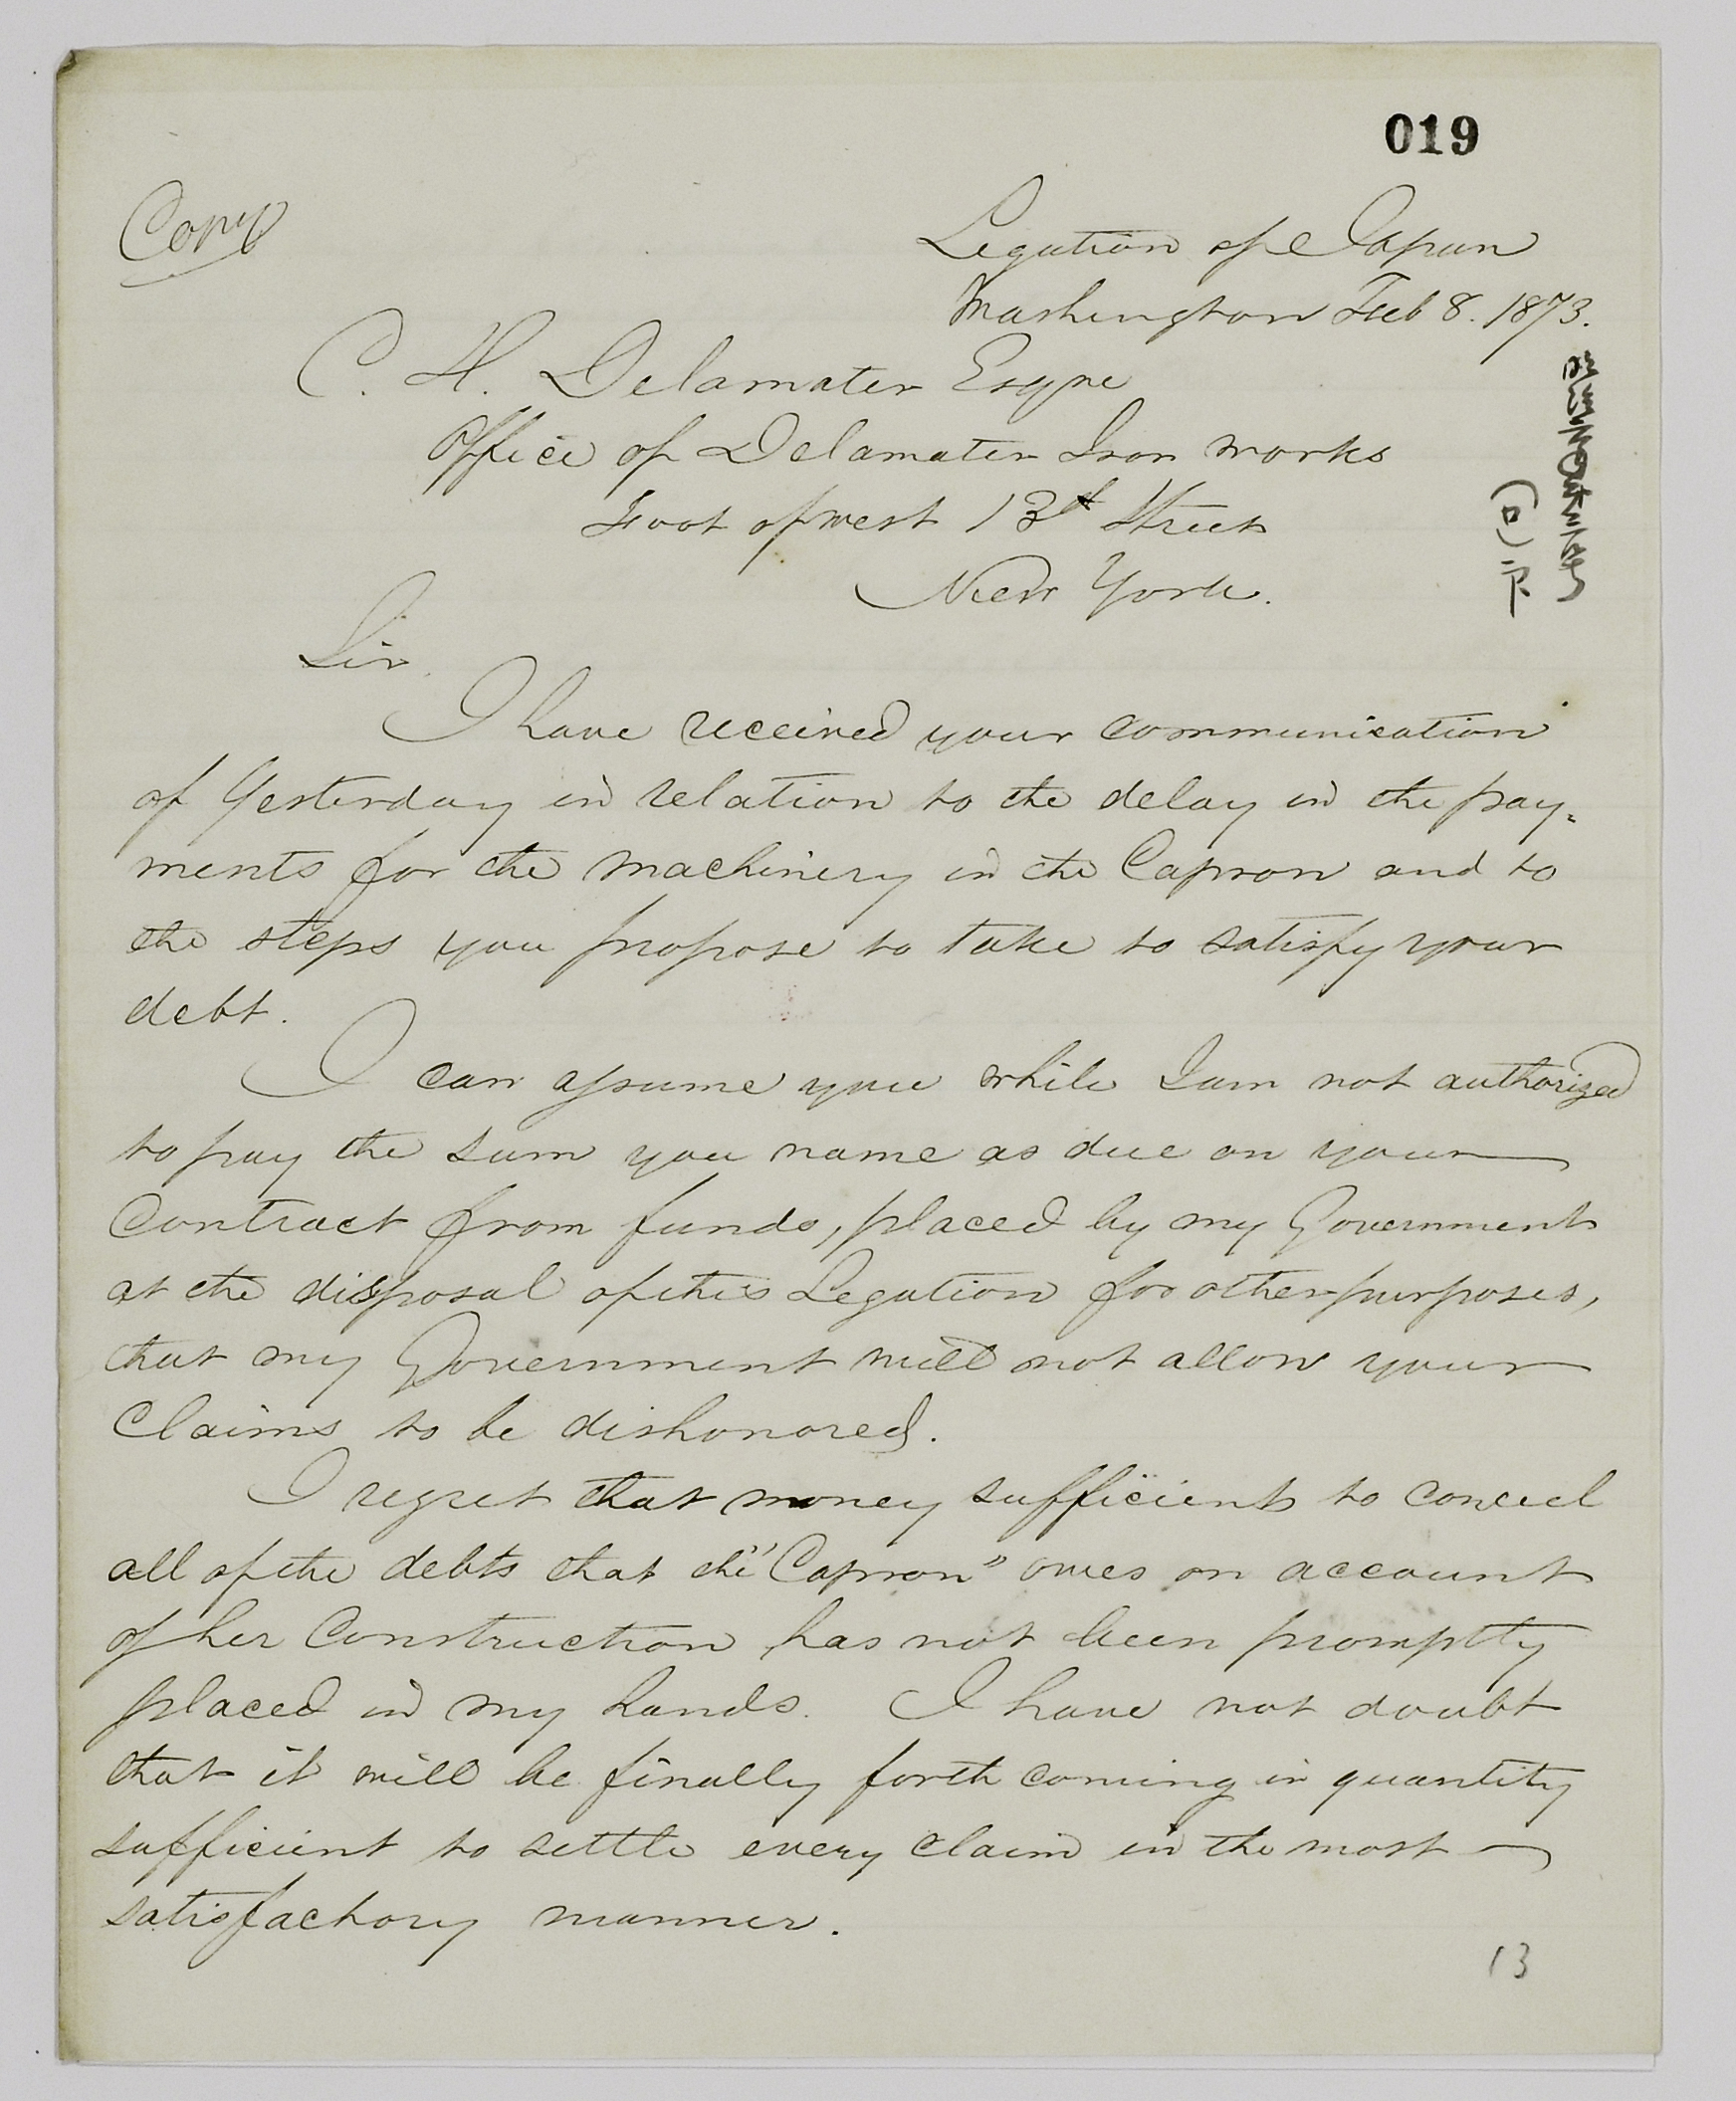 019
Copy
Legation of Japan
Washington Feb 8. 1873.
C. H. Delamater Esqre
Office of Delamater Iron works
Foot of west 13th Street
New York.
Sir.
I have received your communication
of Yesterday in relation to the delay in the pay-
ments for the machinery in the Capron and to
the steps you propose to take to satisfy your
debt.
I can assume you while I am not authorized
to pay the sum you name as due on your
Contract from funds, placed by my Government
at the disposal of this Legation for other purposes,
that my Government will not allow your
Claims to be dishonored.
I regret that money sufficient to concel
all of the debts that the "Capron" owes on account
of her Construction has not been promptly
placed in my hands. I have not doubt
that it will be finally forth coming in quantity
sufficient to settle every claim in the most
satisfactory manner.
13